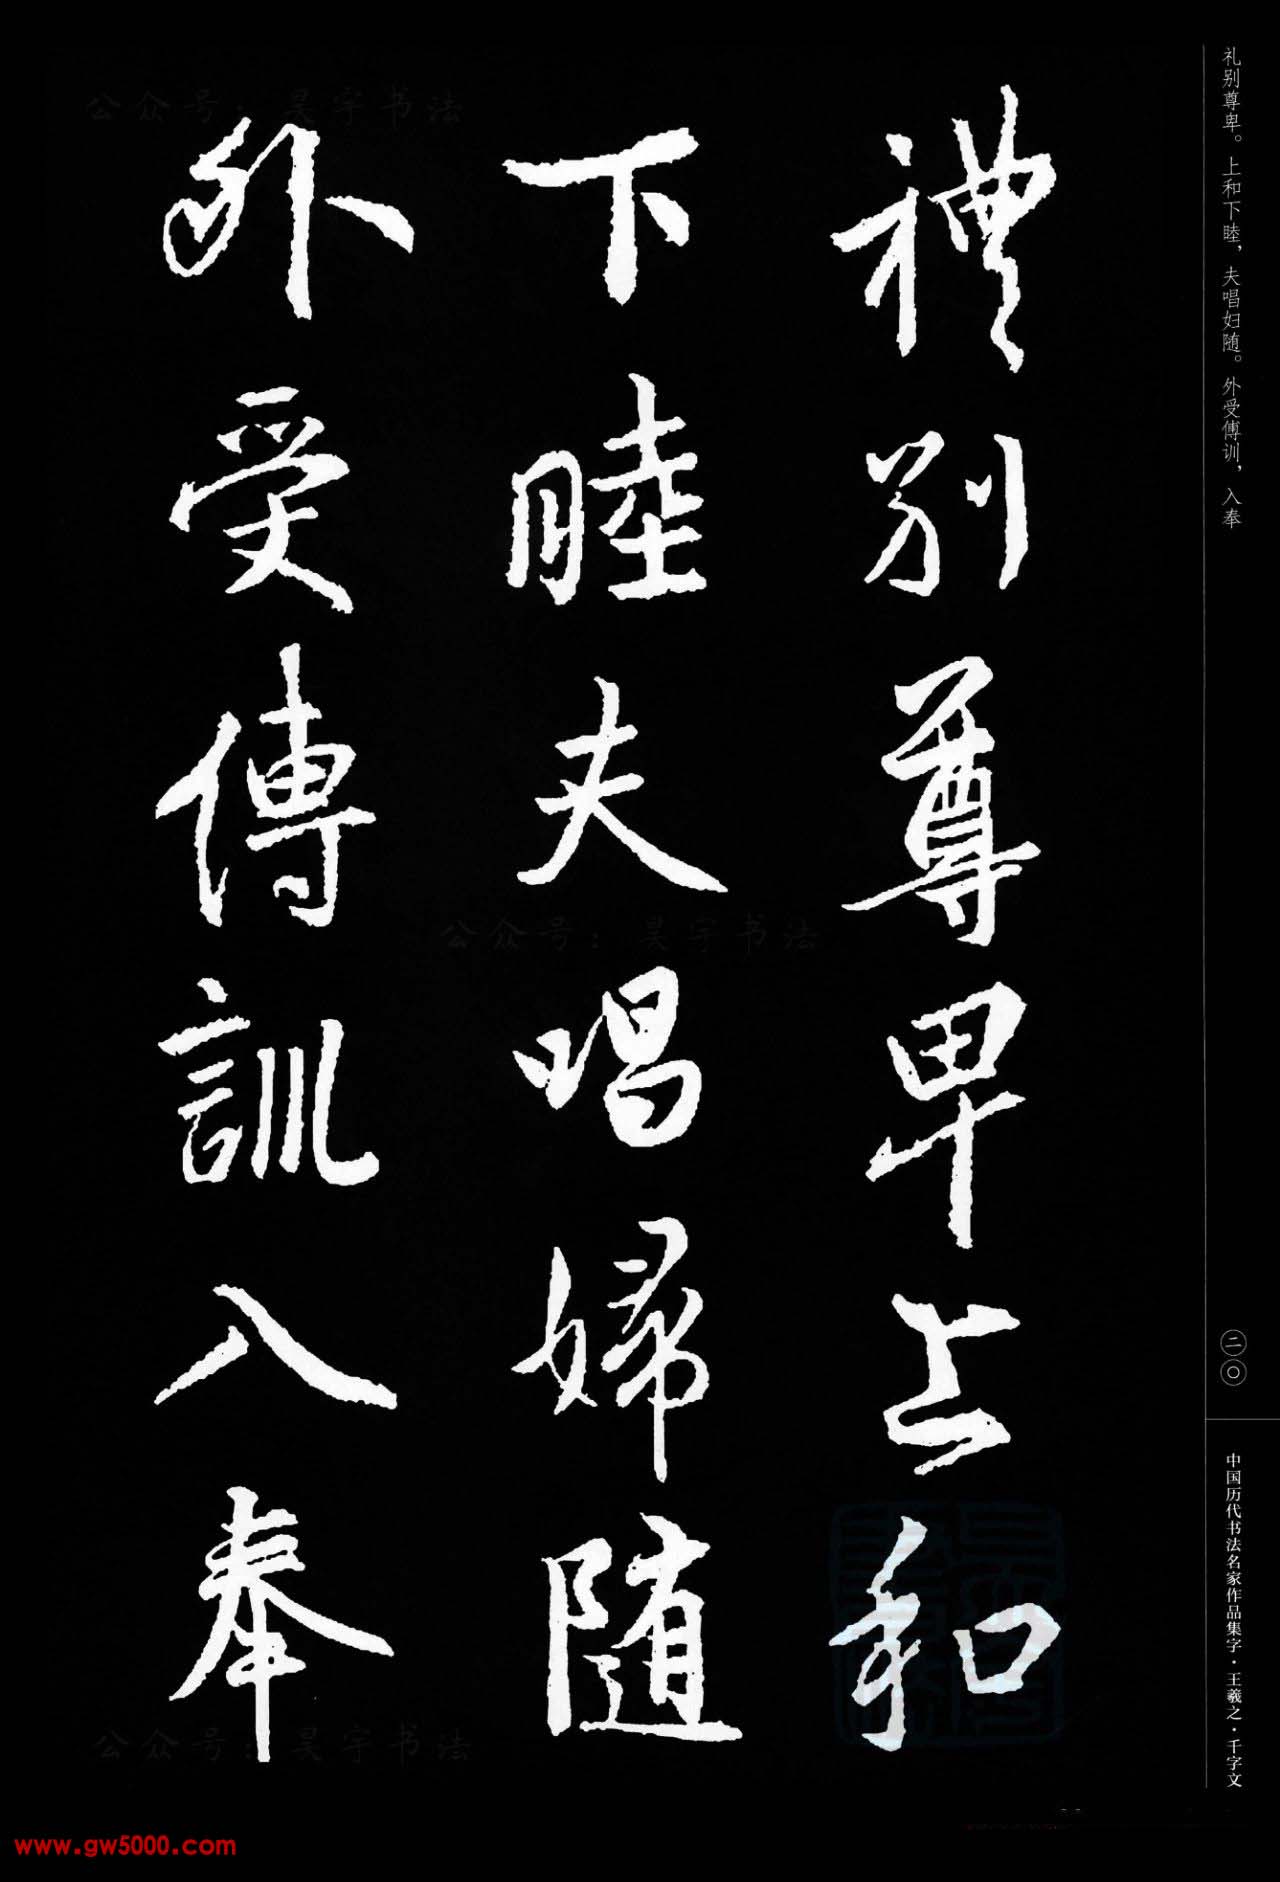 礼别尊卑。上和下睦，夫唱妇随。外受傅训，入奉
禮别尊卑上和
下睦夫唱婦随
外受傅訓入奉
二〇
中国历代书法名家作品集字·王羲之·千字文
公众号：昊宇书法
公众号：昊宇书法
公众号：昊宇书法
www.gw5000.com